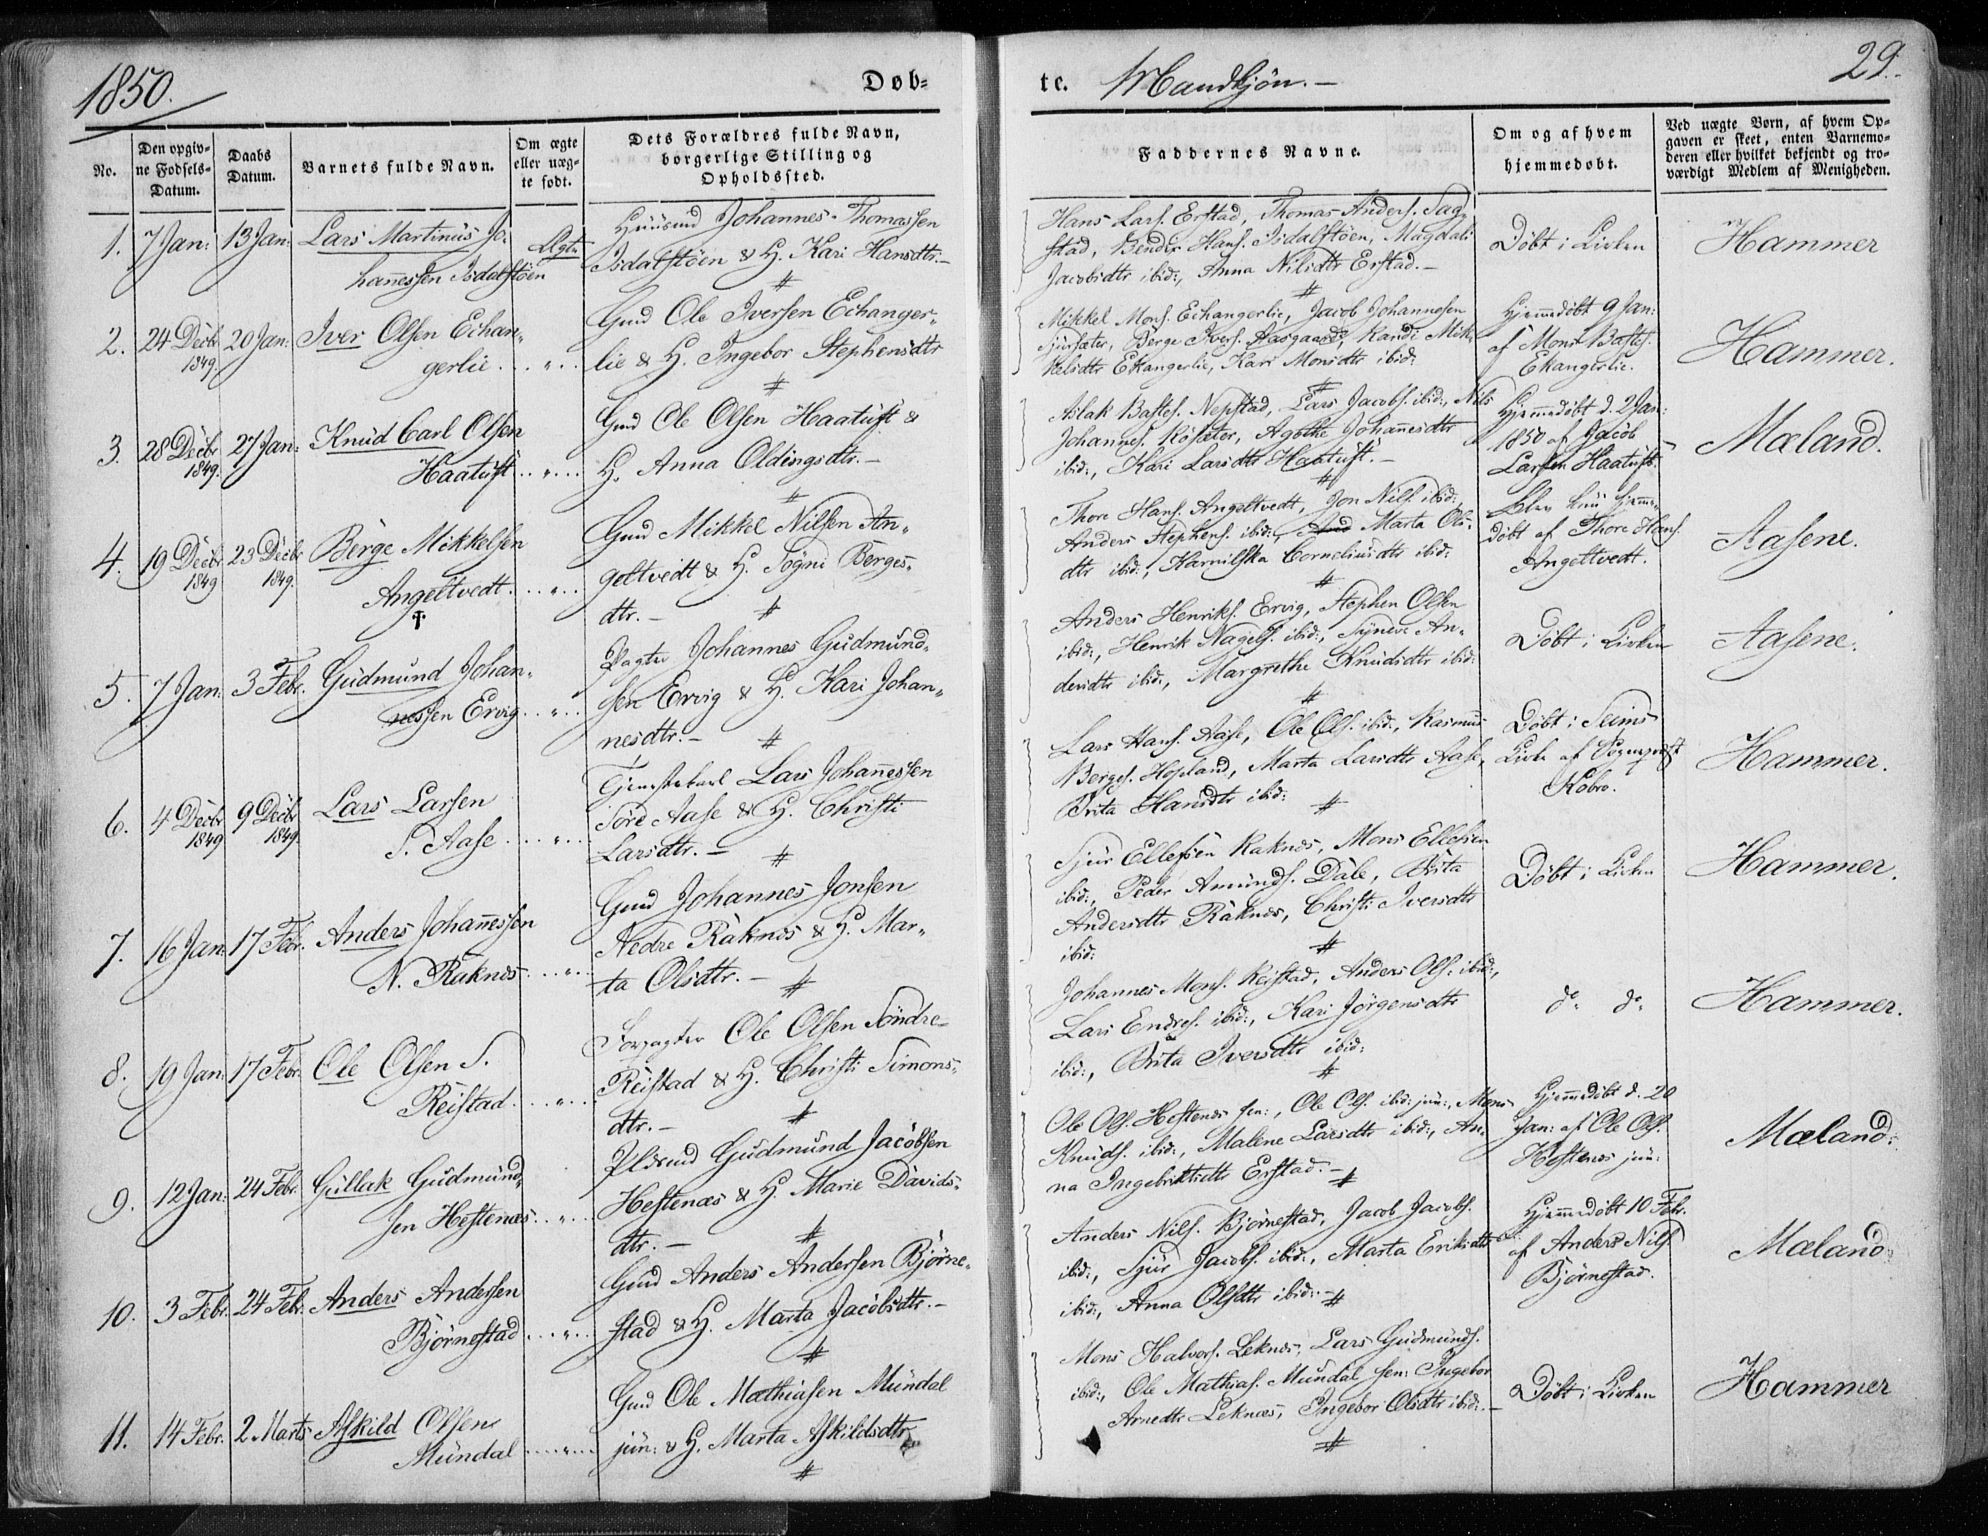 1850.
Døb=
No.
Den opgiv-
ne Fødsels-
Datum.
Daabs
Datum.
Barnets fulde Navn.
Om ægte
eller uæg-
te født.
Dets Forældres fulde Navn,
borgerlige Stilling og
Opholdssted.
1. 7 Jan: 13 Jan: Lars Martinus Jo-
hannessen Isdalstöen
Ægte
Huusmd Johannes Thomassen
Isdalstöen & H. Kari Hansdtr. -
2. 24 Decbr 1849 20 Jan: Iver Olsen Echan-
gerlie
Gmd Ole Iversen Echanger-
lie & H. Ingebor Stephensdtr
3. 28 Decbr 1849. 27 Jan: Knud Carl Olsen
Haatuft
Gmd Ole Olsen Haatuft &
H. Anna Oldingsdtr. -
4. 19 Decbr 1849 23 Decbr 1849. Børge Mikkelsen
Angeltvedt
Gmd Mikkel Nilsen An-
geltvedt & H. Børges-
dtr. -
5. 7 Jan: 3 Febr. Gudmund Johan-
nessen Ervig
Pagter Johannes Gudmund-
sen Ervig & H. Kari Johan-
nesdtr. -
6. 4 Decbr 1849 9 Decbr 1849. Lars Larsen
S. Aase
Tjenestekarl Lars Johannessen
Söre Aase & H. Christi
Larsdtr. -
7. 16 Jan: 17 Febr. Anders Johannessen
N. Raknes
Gmd Johannes Jonsen
Nedre Raknes & H. Mar-
ta Olsdtr. -
8. 19 Jan: 17 Febr. Ole Olsen S.
Reistad
Ole Olsen Söndre-
Reistad & H. Christi Simons-
dtr. -
9. 12 Jan: 24 Febr. Gullak Gudmund-
sen Hestenæs
Gudmund Jacobsen
Hestenæs & H. Marie Davids-
dtr. -
10. 3 Febr. 24 Febr. Anders Andersen
Björnestad
Gmd Anders Andersen Björne-
stad & H. Marta Jacobsdtr. -
11. 14 Febr. 2 Marts Askild Olsen
Mundal
Gmd Ole Mathiasen Mundal
jun: & H. Marta Askildsdtr
te. Mandkjön. -
29.
Faddernes Navne.
Om og af hvem
hjemmedøbt.
Ved uægte Børn, af hvem Op-
gaven er skeet, enten Barnemo-
deren eller hvilket bekjendt og tro-
værdigt Medlem af Menigheden.
Hans Lars. Erstad, Thomas Anders. Sag-
stad, Hans. Isdalstöen, Magdali
Jacobsdtr ibid:, Anna Nilsdtr Erstad. -
Döbt i Kirken
Hammer
Mikkel Mons. Echangerlie, Jacob Johannesen
Börge Ivers. Aasgaard, Randi Mik-
kelsdtr Ekangerlie, Kari Monsdtr ibid:
Hjemmedöbt 9 Jan:
af Mons
Ekangerlie.
Hammer.
Aslak Nepstad, Lars Jacobs. ibid:, Nils
Johannes. Agathe Johannesdtr
ibid:, Kari Larsdtr Haatuft. -
Hjemmedöbt d. 2 Jan:
1850 af Jacob
Larsen Haatuft.
Mæland.
Thore Hans. Angeltvedt, Jon Nils. ibid:
Anders Stephens. ibid:, Marta Ols-
dtr ibid:, Corneliusdtr ibid:
Blev kun hjemme-
döbt af Thore Hans.
Angeltvedt.
Aasene.
Anders Henriks. Ervig, Stephen Olsen
ibid:, Henrik Nagels. ibid:, Syneve An-
dersdtr ibid:, Margrethe Knudsdtr ibid:
Döbt i Kirken
Aasene.
Lars Hans. Aase, Ole Ols. ibid:, Rasmus
Berges. Hopland, Marta Larsdtr Aase,
Brita Hansdtr ibid:
Döbt i Seims
Kirke af Sognepræst
Kobro.
Hammer.
Sjur Ellefsen Raknes, Mons Ellefsen
ibid:, Peder Amunds. Dale, Brita
Andersdtr Raknes, Christi Iversdtr
ibid:
Döbt i Kirken
Hammer.
Johannes Mons. Reistad, Anders Ols. ibid:,
Lars Endres. ibid:, Kari Jörgensdtr
ibid:, Brita Iversdtr ibid:
do. do.
Hammer.
Ole Ols. Hestenes sen:, Ole Ols. ibid: jun:, Mons
Knuds. ibid:, Malene Larsdtr ibid:, An-
na Ingebrektsdtr Erstad. -
Hjemmedöbt d. 20
Jan: af Ole Ols.
Hestenes jun:
Mæland:
Anders Nils. Björnestad, Jacob Jacobs.
ibid:, Sjur Jacobs. ibid:, Marta Eriksdtr
ibid:, Anna Olsdtr ibid: -
Hjemmedöbt 10 Febr.
af Anders Nils.
Björnestad.
Mæland:
Mons Halvors. Leknes, Lars Gudmunds.
ibid:, Ole Mathias. Mundal sen: Ingebor
Arnedtr Leknæs, Ingebor Olsdtr ibid: -
Döbt i Kirken
Hammer